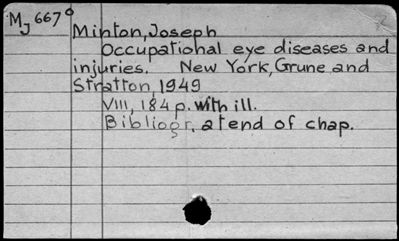 MJ 667°
Minton, Joseph
Occupational eye diseases and
injuries. New York, Grune and
Stratton, 1949
VIII, 184 p. with ill.
Bibliogr. at end of chap.